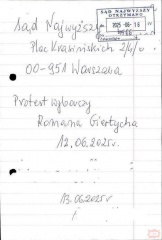 Sąd Najwyższy
SĄD NAJWYŻSZY
OTRZYMANO
2025 -06- 16
Plac Krasińskich 2/4/6
00-951 Warszawa
Protest wyborczy
Romana Giertycha
12.06.2025r.
13.06.2025r